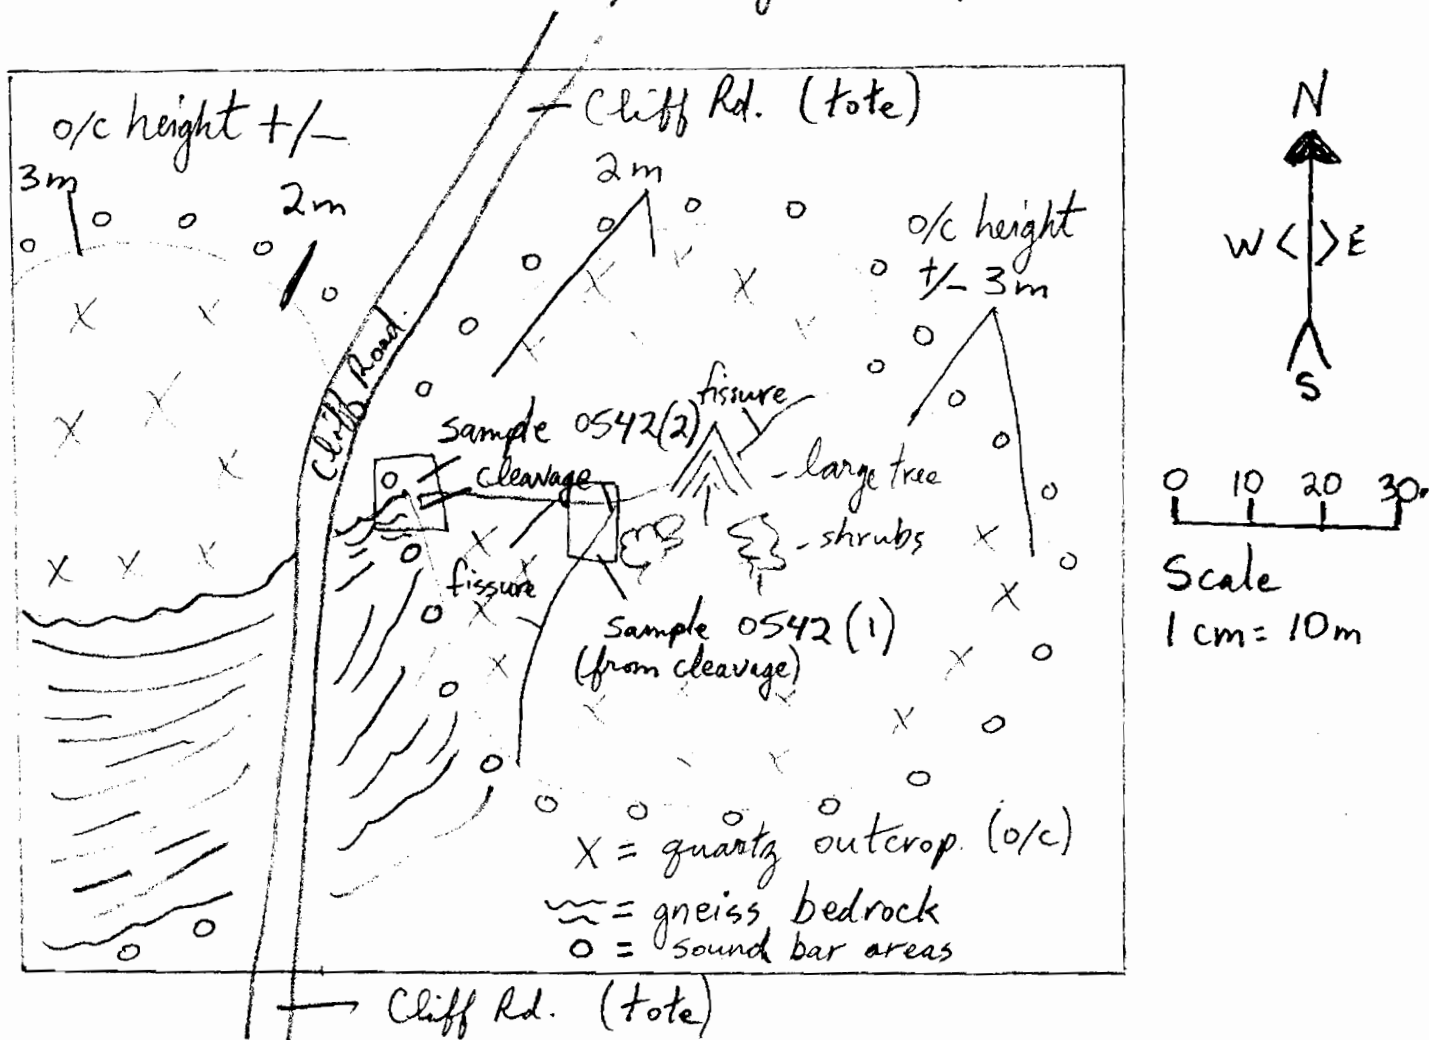 Cliff Rd. (tote)
o/c height +/-
3m
2m
2m
o/c height
+/- 3m
N
W E
S
Cliff Road.
fissure
sample 0542(2)
cleavage
- large tree
- shrubs
fissure
sample 0542 (1)
(from cleavage)
0 10 20 30
Scale
1 cm = 10m
X = quartz outcrop. (o/c)
= gneiss bedrock
o = sound bar areas
Cliff Rd. (tote)